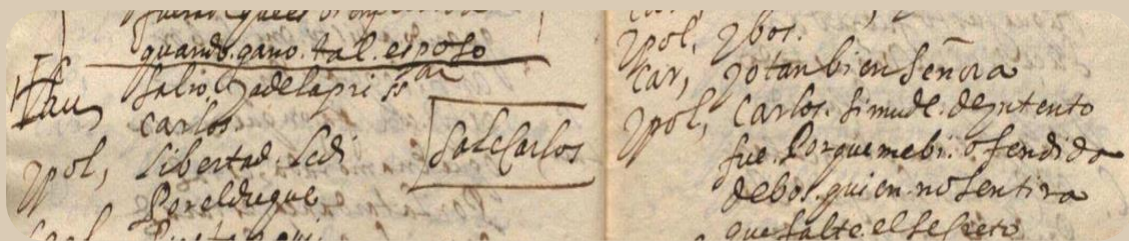 quando. gano. tal. esposo
salio. ya de la prissa
carlos.
ypol, libertad. le di
Por el duque
sale Carlos
ypol, y bos.
car, yo tanbien señora
ypol, Carlos. si mude. de yntento
fue. Porque me bi. ofendida
de bos. quien no sentira
que falte. el secreto